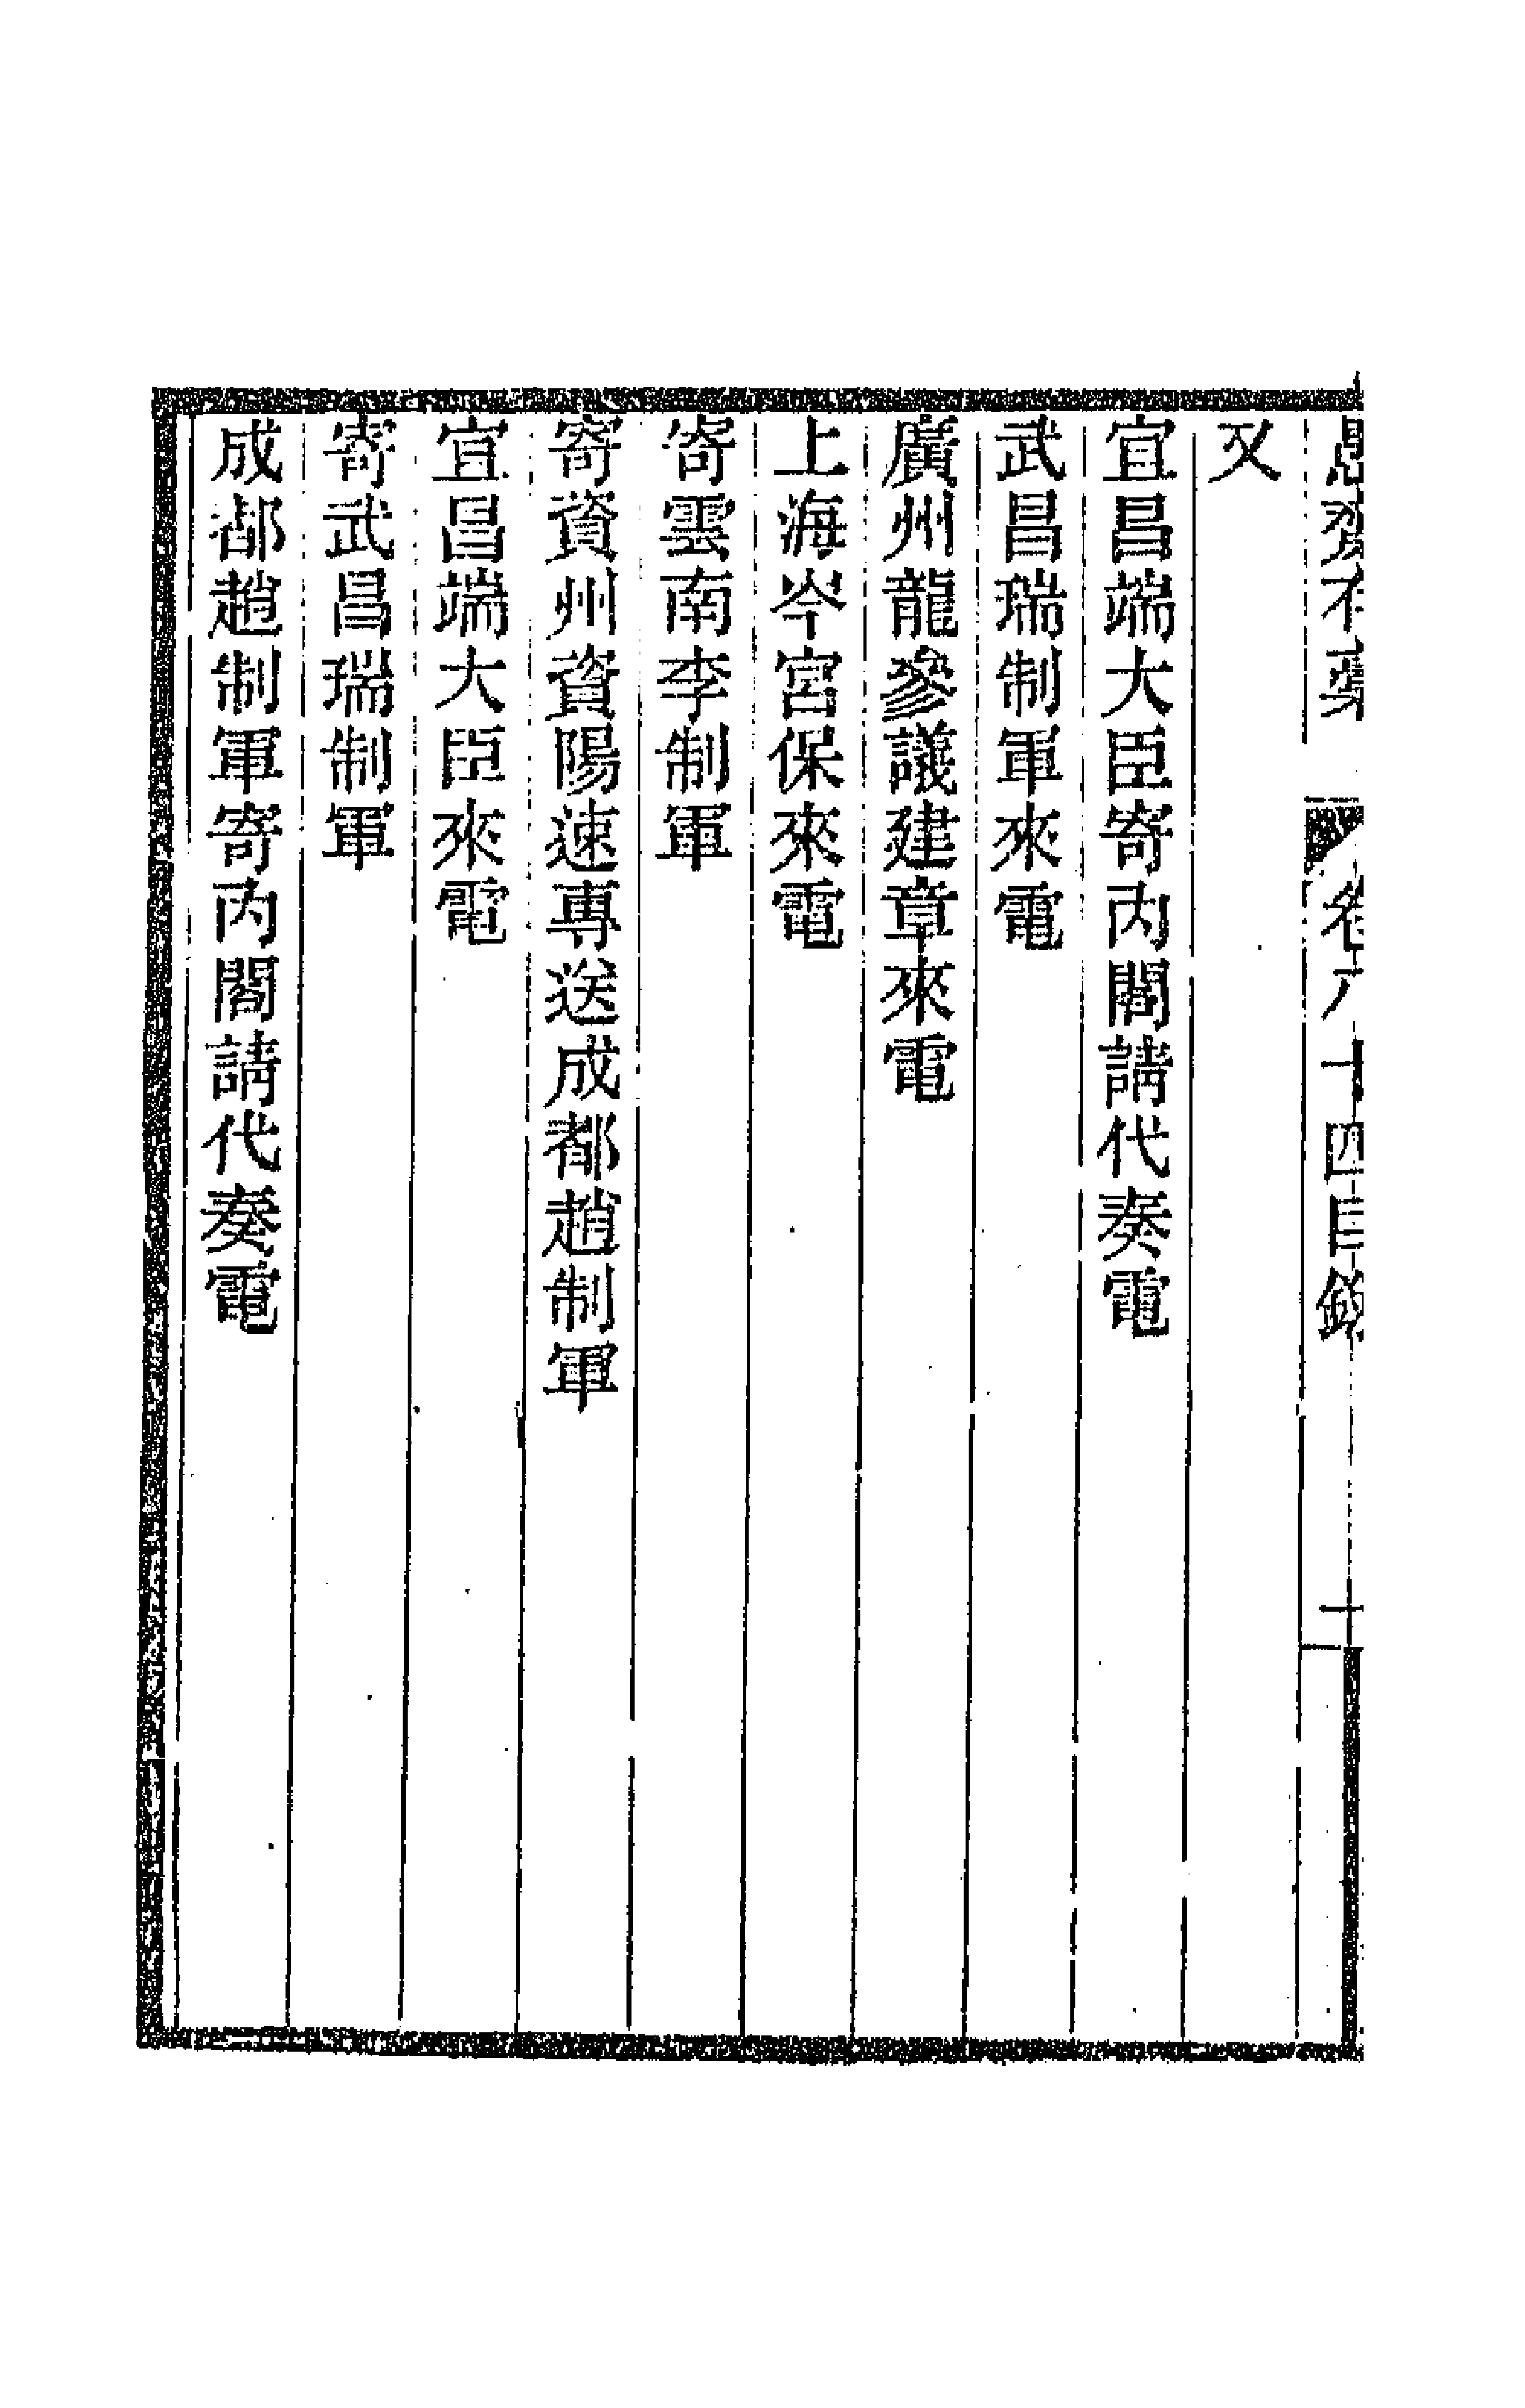 愚齋存稾 卷八十四目錄 十
又
宜昌端大臣寄內閣請代奏電
武昌瑞制軍來電
廣州龍參議建章來電
上海岑宮保來電
寄雲南李制軍
寄資州資陽速專送成都趙制軍
宜昌端大臣來電
寄武昌瑞制軍
成都趙制軍寄內閣請代奏電